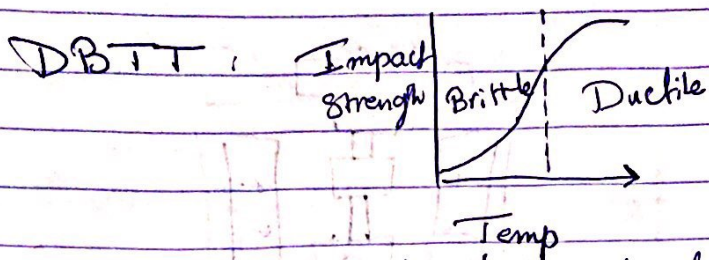 DBTT : Impact
strength Brittle Ductile
Temp